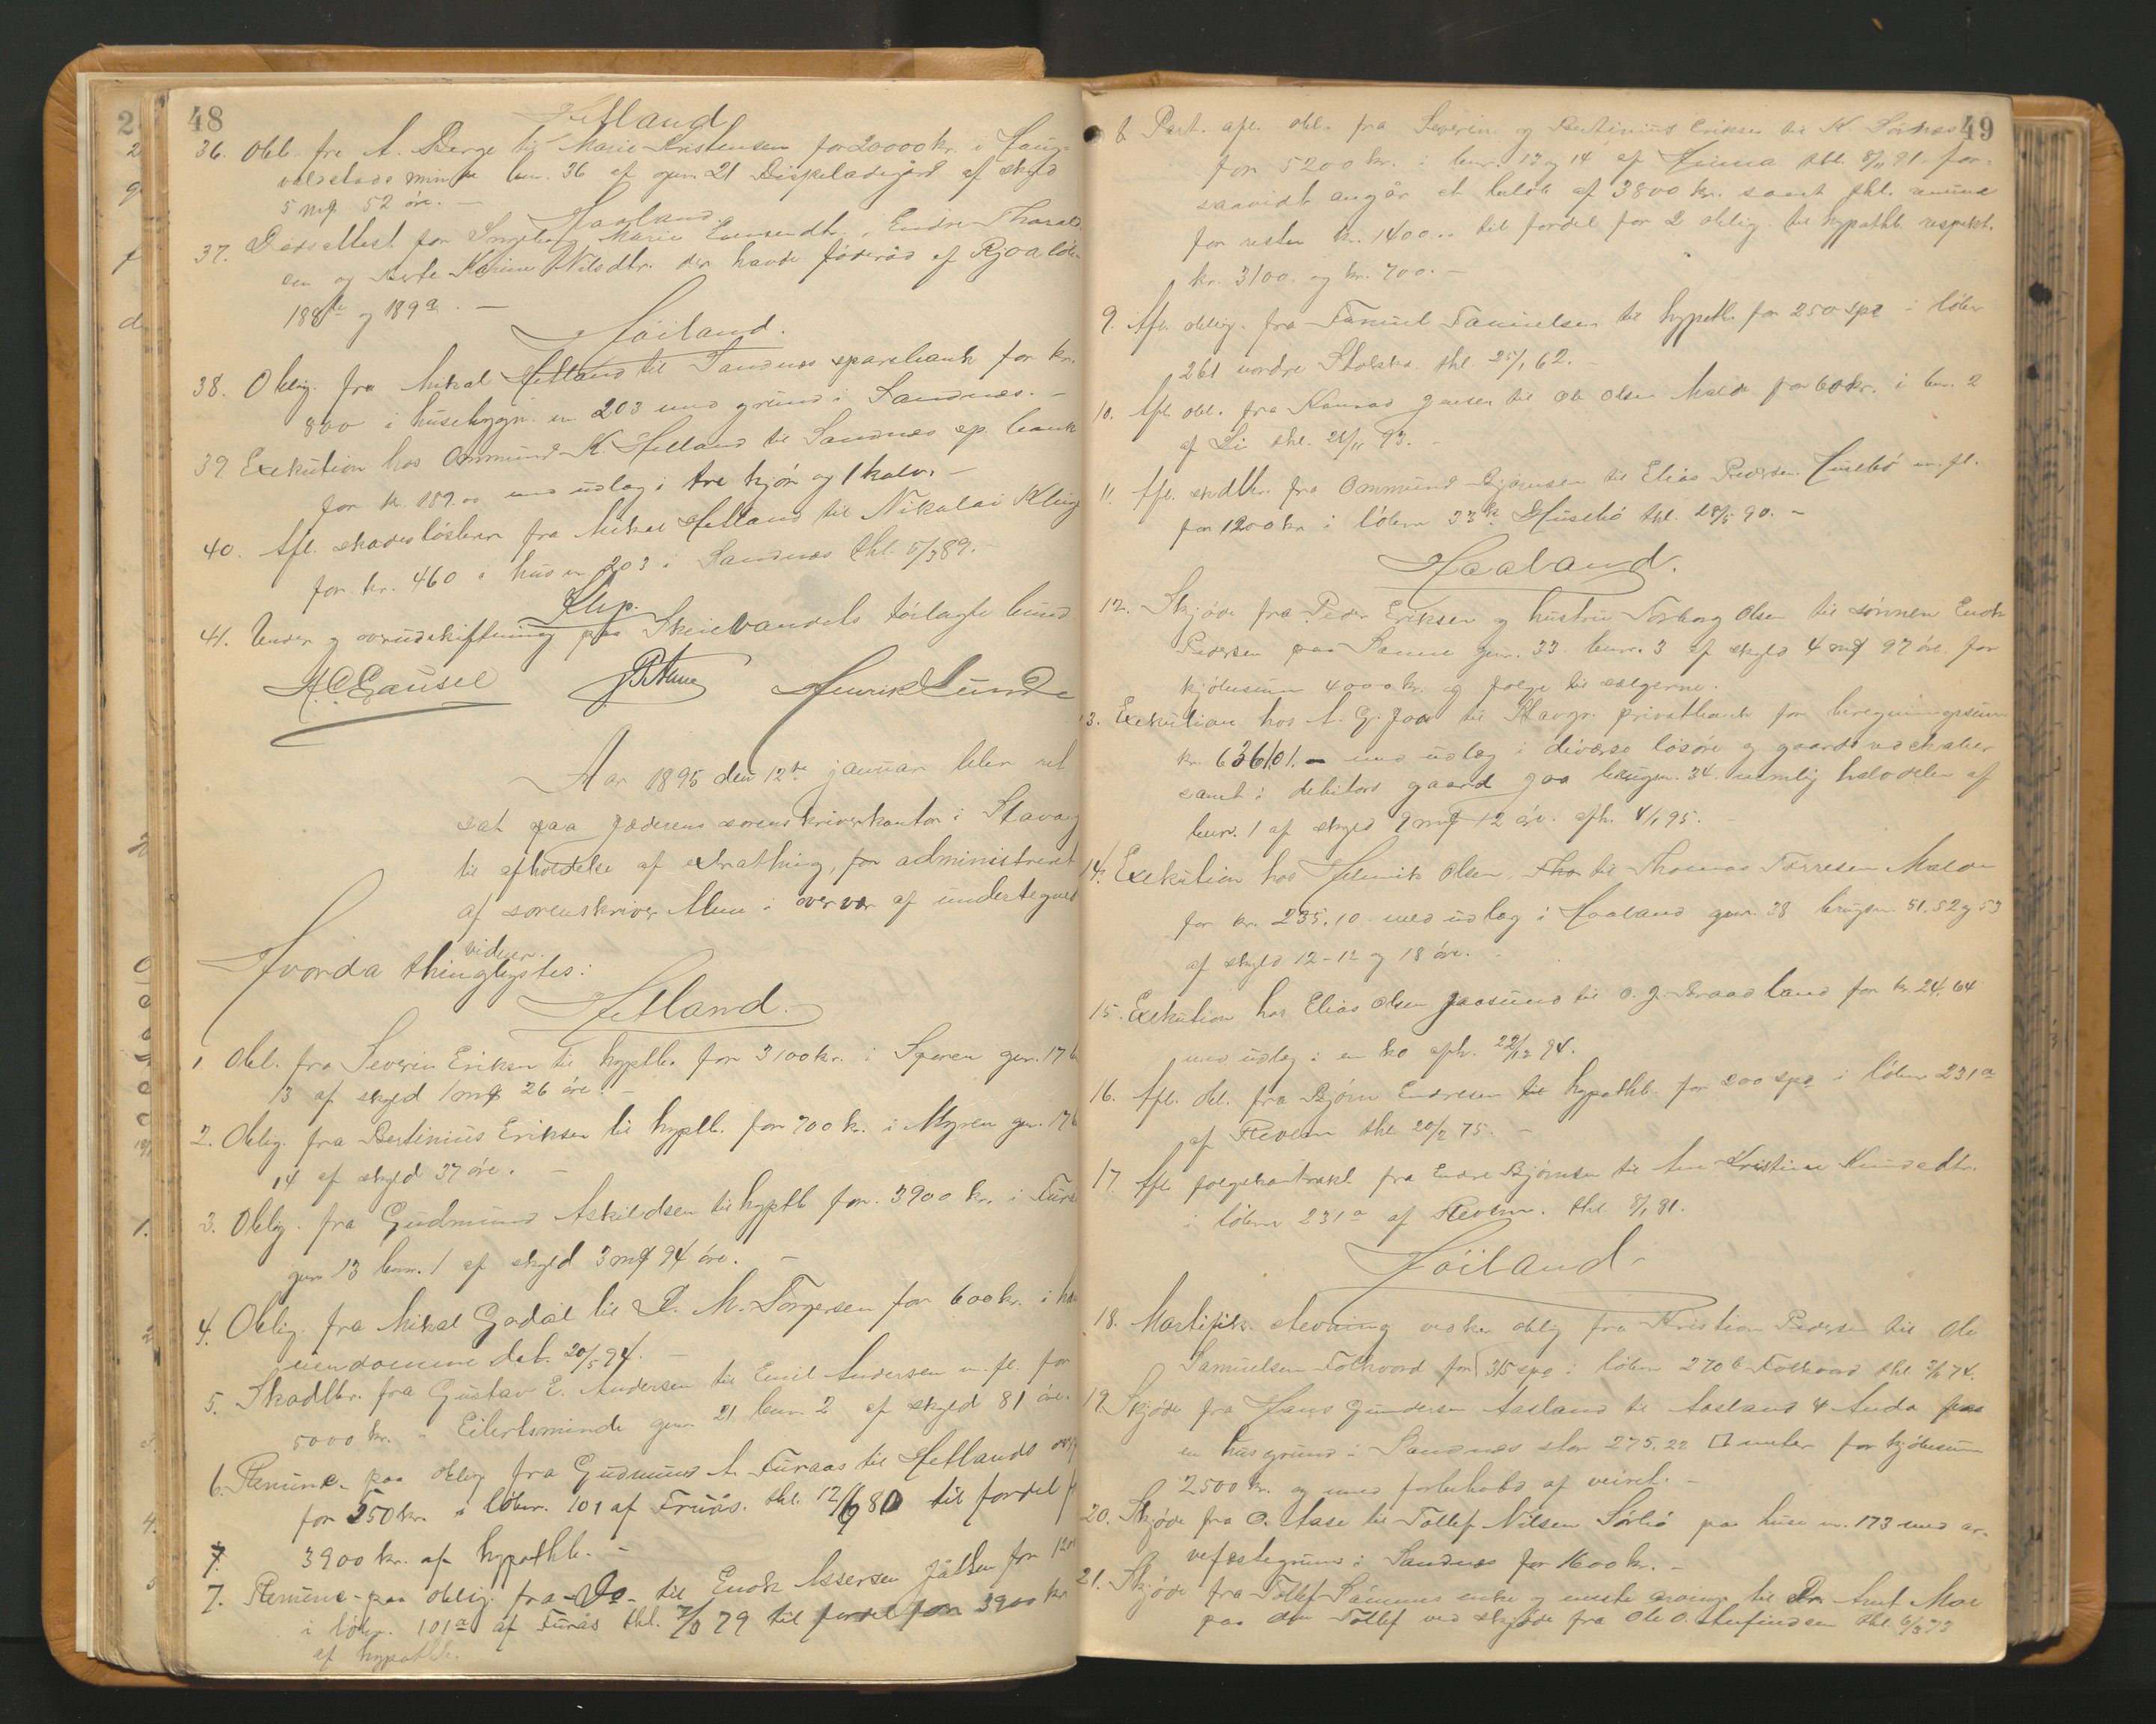 48
Hetland
36. Obl. fra A. Berge til Marie Kristensen for 20000 kr. i Haug-
valdstads minde bnr. 36 af gnr. 21 Bispeladegård af skyld
5 mg 52 øre. —
Haaland.
37. Dødsattest for Ingeborg Marie Enevendtr., Endre Thorald-
sen og Berte Karine Nilsdtr. der havde føderåd af Rjoa löbn
188 b og 189 a. —
Höiland.
38. Oblig. fra Mikal Hetland til Sandnes sparebank for kr.
800 i husebygn. nr. 203 med grund i Sandnes. —
39. Exekution hos Ommund K. Helland til Sandnes sp. bank
for kr. 189.00 med udlæg i tre kjør og 1 kalv. —
40. Afl. skadesløsbrev fra Mikal Hetland til Nikolai Kling
for kr. 460 i hus nr. 203 i Sandnes thl. 5/3 89. —
Klep.
41. Under og overudskiftning paa Skeievandets tørlagte bund
H. C. Gausel Henrik Lunde
Aar 1895 den 12te januar blev ret
sat paa Jæderens sorenskriverkontor i Stavang
til afholdelse af extrathing, for administreret
af sorenskriver Mun i overvær af undertegned
vidner.
Hvorda thinglystes:
Hetland.
1. Obl. fra Severin Eriksen til hypthb. for 3100 kr. i gnr. 17 b
13 af skyld 1 mg 26 øre. —
2. Oblig. fra Bertinius Eriksen til hypthb. for 700 kr. i Myren gnr. 17 b
14 af skyld 37 øre. —
3. Oblig. fra Gudmund Askildsen til hypthb. for 3900 kr. i Furå
gnr 13 bnr. 1 af skyld 3 mg 94 øre. —
4. Oblig. fra Mikal Godal til P. M. Torgersen for 600 kr. i ha
eiendomme dat. 20/5 94. —
5. Skadlbr. fra Gustav E. Andersen til Emil Andersen m. fl. for
5000 kr. i Eilertsminde gnr. 21 bnr. 2 af skyld 81 øre.
6. Renunc. paa oblig fra Gudmund A. Furaas til Hetlands
for 250 kr. i löbnr. 101 af Fruås. thl. 12/6 80 til fordel f
7. 3900 kr. af hypothb. —
7. Renunc. paa oblig. fra Do. til Enok Assersen Jåtten for 120
i löbn. 101 a af Furås thl. 7/3 79 til fordel for 3900 kr
af hypothb.
49
8 Part. afl. obl. fra Severin og Bertinius Eriksen til K. Sörnes
for 5200 kr. i bnr. 13 og 14 af Hinna thl. 8/11 91 for-
saavidt angår et beløb af 3800 kr. samt thl.
for resten kr. 1400.00 til fordel for 2 oblig. til hypothb. respekt.
kr. 3100. og kr. 700. —
9. Afl. oblig. fra Samuel Samuelsen til hypoth. for 250 spd i löbnr
261 nordre Stokka. thl. 25/1 62.
10. Afl. obl. fra Konrad Jensen til Ole Olsen Malde for 60 kr. i bnr. 2
af Li thl. 21/11 93. —
11. Afl. skdlbr. fra Ommund Bjørnsen til Elias Pedersen Husebö m. fl.
for 1200 kr. i löbnr 33 Husebö thl. 28/5 90. —
Haaland.
12. Skjøde fra Peder Eriksen og hustru Torborg Olsen til sønnen Enok
Pedersen paa Sømme gnr. 33 bnr. 3 af skyld 4 mg 97 øre for
kjøbesum 4000 kr. og folge til sælgerne.
13. Exekution hos A. G. Joa til Stavgr. privatbank for beregningssum
kr. 636101. — med udlæg i diverse løsøre og gaardsredskaber
samt i debitors gaard Joa brugnr. 34. nemlig halvdelen af
bnr. 1 af skyld 9 mg 12 øre. afh. 4/1 95. —
14. Exekution hos Helmik Olsen, Tho til Thomas Torresen Malde
for kr. 235.10 med udlæg i Haaland gnr. 38 brugsnr. 51, 52 og 53
af skyld 12 – 12 og 18 øre. —
15. Exekution hos Elias Olsen Jaasund til O. J. Braadland for kr. 24.64
med udlæg i en ko afh. 22/12 94.
16. Afl. obl. fra Bjørn Endresen til hypothb. for 200 spd i löbnr 231 a
af Reven thl. 20/2 75. —
17. Afl. folgekontrakt fra Endre Bjørnsen til Ane Kristine Knudsdtr.
i löbnr 231 a af Reven. thl. 8/1 81.
Höiland.
18. Mortifik. stevning vedkr. oblig fra Kristian Pedersen til Ole
Samuelsen Folkvord for 315 spd i löbnr 270 b Folkvord thl. 2/6 74.
19. Skjøde fra Hans Gundersen Aasland til Aasland & Auda paa
en husgrund i Sandnes stor 275,22 □ meter for kjøbesum
2500 kr. og med forbehold af veiret. —
20. Skjøde fra O. Aase til Tollef Nilsen Sørbø paa huse nr. 173 med ar-
vefæstegrund i Sandnes for 1600 kr. —
21. Skjøde fra Tollef Sømmes enke og eneste arving til Dr. Aml. Moe
paa den Tollef ved skjøde fra Ole O. Aufindsen thl. 6/3 73